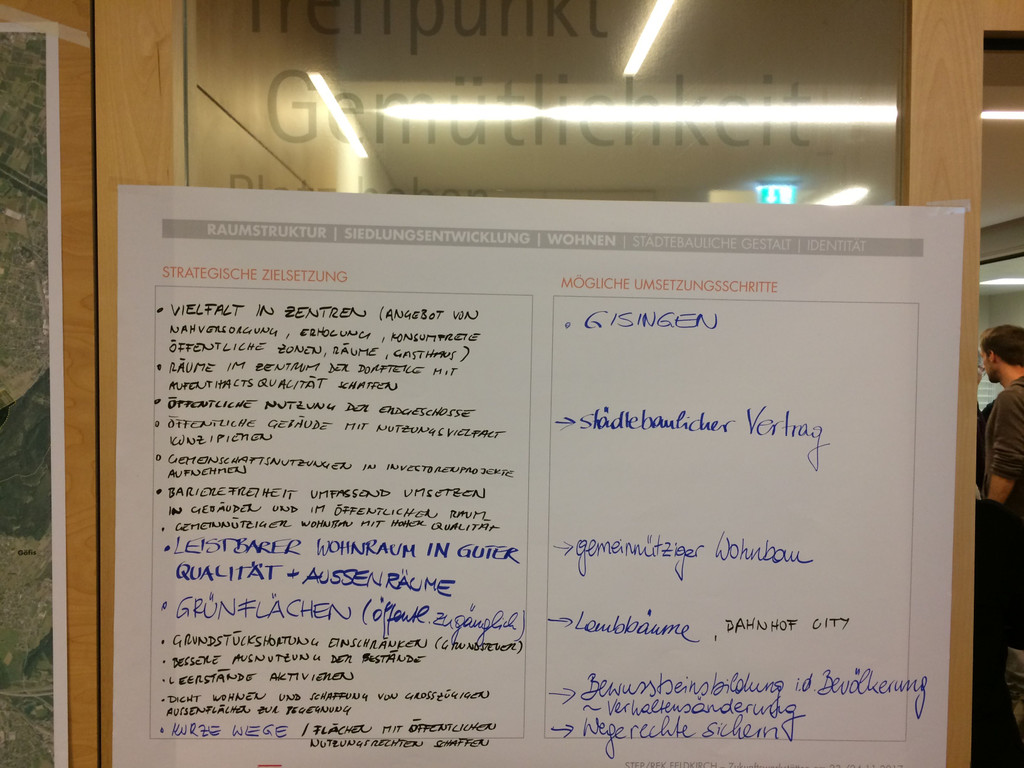 Treffpunkt
Gemütlichkeit
Platz haben
Göfis
RAUMSTRUKTUR | SIEDLUNGSENTWICKLUNG | WOHNEN | STÄDTEBAULICHE GESTALT | IDENTITÄT
STRATEGISCHE ZIELSETZUNG
• VIELFALT IN ZENTREN (ANGEBOT VON
NAHVERSORGUNG, ERHOLUNG, KONSUMFREIE
ÖFFENTLICHE ZONEN, RÄUME, GASTHAUS)
• RÄUME IM ZENTRUM DER DORFTEILE MIT
AUFENTHALTSQUALITÄT SCHAFFEN
• ÖFFENTLICHE NUTZUNG DER ERDGESCHOSSE
• ÖFFENTLICHE GEBÄUDE MIT NUTZUNGSVIELFALT
KONZIPIEREN
• GEMEINSCHAFTSNUTZUNGEN IN INVESTORENPROJEKTE
AUFNEHMEN
• BARIEREFREIHEIT UMFASSEND UMSETZEN
IN GEBÄUDEN UND IM ÖFFENTLICHEN RAUM
• GEMEINNÜTZIGER WOHNBAU MIT HOHER QUALITÄT
• LEISTBARER WOHNRAUM IN GUTER
QUALITÄT + AUSSENRÄUME
• GRÜNFLÄCHEN (öffentl. zugänglich)
• GRUNDSTÜCKSHORTUNG EINSCHRÄNKEN (GRUNDSTEUER)
• BESSERE AUSNUTZUNG DER BESTÄNDE
• LEERSTÄNDE AKTIVIEREN
• DICHT WOHNEN UND SCHAFFUNG VON GROSSZÜGIGEN
AUSSENFLÄCHEN ZUR BEGEGNUNG
• KURZE WEGE / FLÄCHEN MIT ÖFFENTLICHEN
NUTZUNGSRECHTEN SCHAFFEN
MÖGLICHE UMSETZUNGSSCHRITTE
• GISINGEN
→ städtebaulicher Vertrag
→ gemeinnütziger Wohnbau
→ Laubbäume, BAHNHOF CITY
→ Bewusstseinsbildung i.d. Bevölkerung
~ Verhaltensänderung
→ Wegerechte sichern
STEP/REK FELDKIRCH – Zukunftswerkstätten am